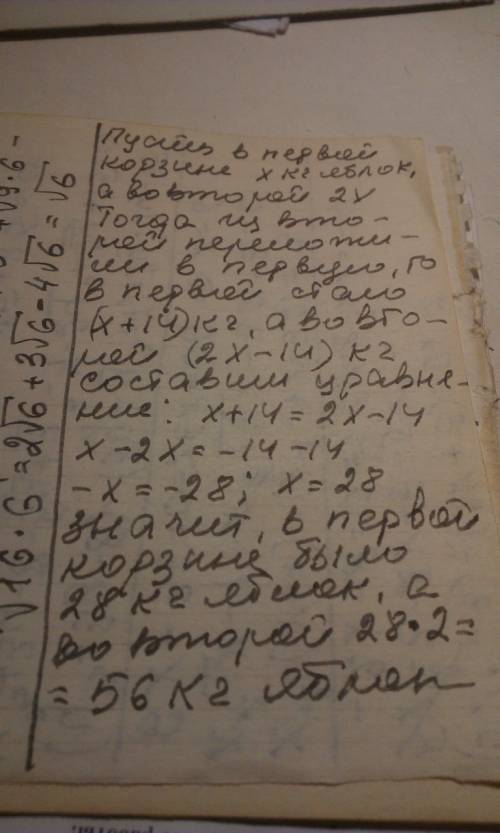 Пусть в первой
корзине x кг яблок,
а во второй 2x
Тогда из вто-
рой переложи-
ли в первую, то
в первой стало
(x+14) кг, а во вто-
рой (2x-14) кг
составим уравне-
ние: x+14=2x-14
x-2x=-14-14
-x=-28; x=28
значит, в первой
корзине было
28 кг яблок, а
во второй 28·2=
=56 кг яблок
√16·6=2√6+3√6-4√6=√6